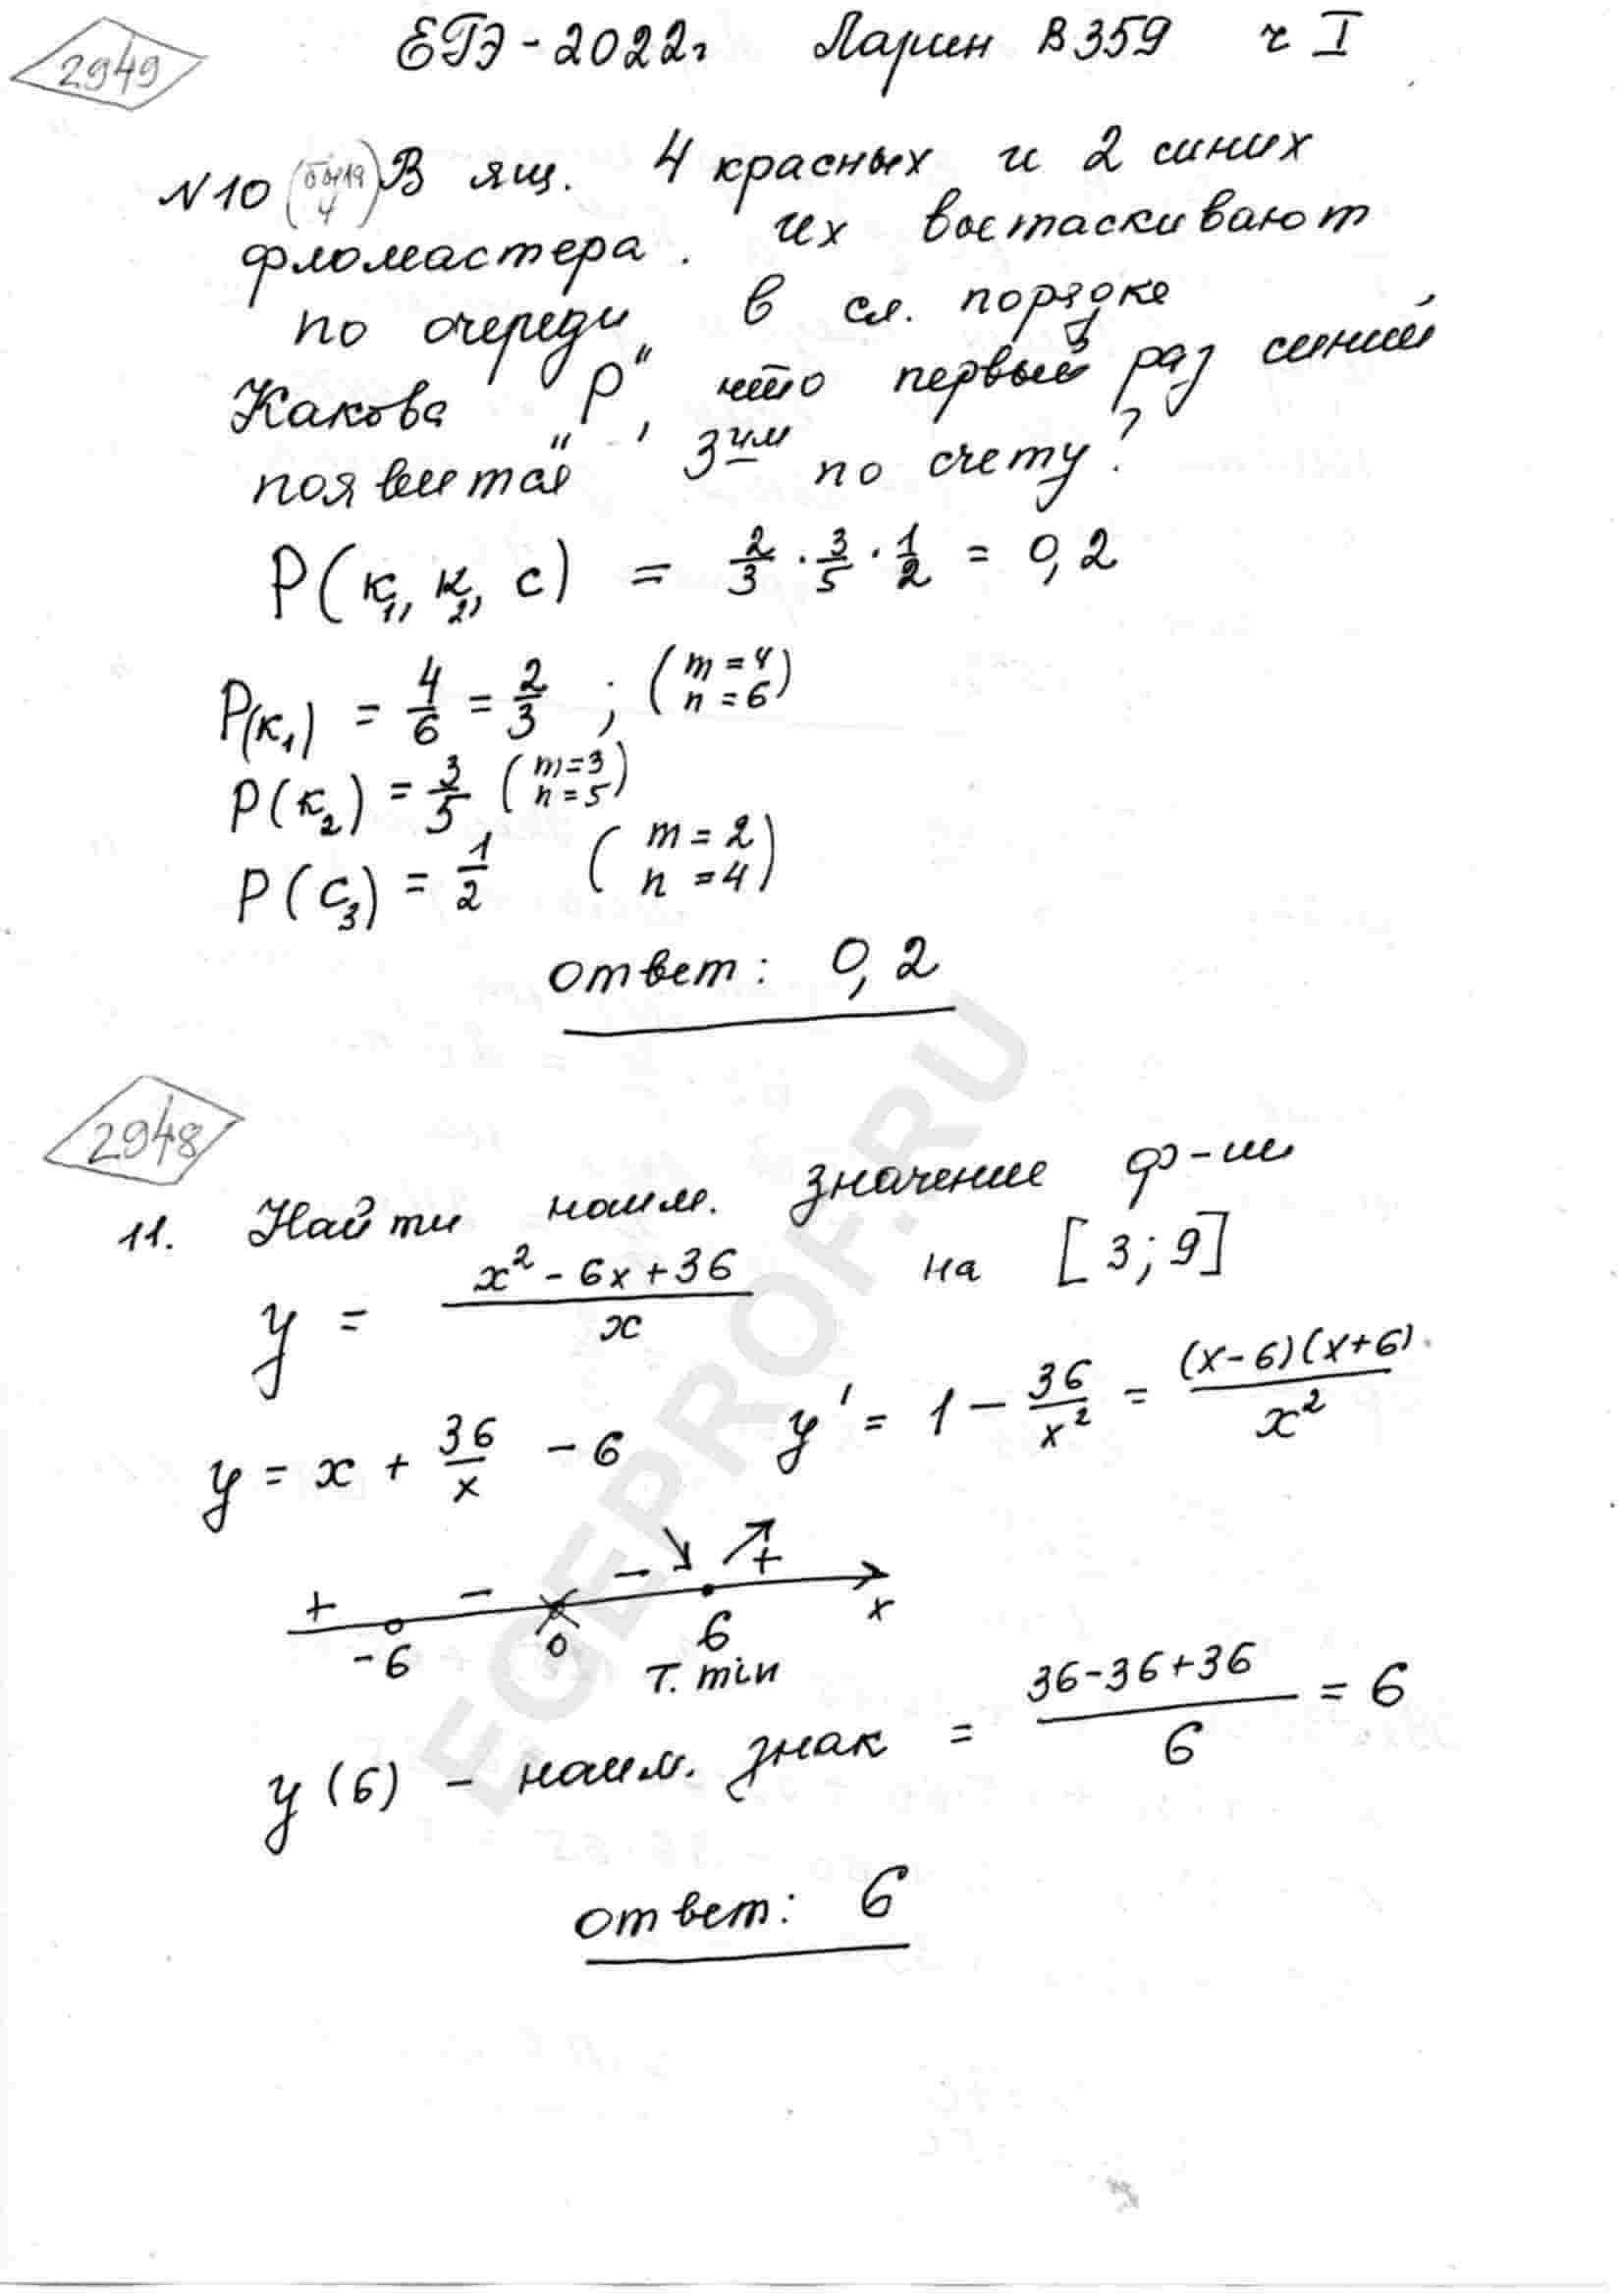 2949
ЕГЭ-2022г Ларин В359 ч I
N10 В ящ. 4 красных и 2 синих
фломастера. Их вытаскивают
по очереди в сл. порядке
Какова "P", что первый раз синий
появится 3им по счету?
P(к₁, к₂, с) = 2/3 · 3/5 · 1/2 = 0,2
P(к₁) = 4/6 = 2/3 ; (m=4 n=6)
P(к₂) = 3/5 (m=3 n=5)
P(с₃) = 1/2 (m=2 n=4)
ответ: 0,2
2948
11. Найти наим. значение ф-ии
y = (x² - 6x + 36)/x на [3; 9]
y = x + 36/x - 6 y' = 1 - 36/x² = (x-6)(x+6)/x²
+ - - ↘ ↗ +
-6 0 6 x
т. min
y(6) - наим. знак = (36-36+36)/6 = 6
ответ: 6
EGEPROF.RU